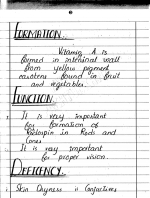 FORMATION.
Vitamin A is
formed in intestinal wall
from yellow pigment
carotene found in fruit
and vegetables.
FUNCTION.
It is very important
for formation of
Rhodopsin in Rods and
Cones
It is very important
for proper vision.
DEFICENCY.
Skin Dryness